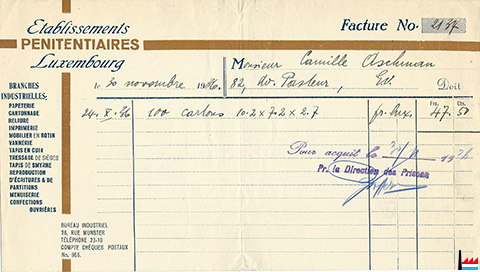 Etablissements
PENITENTIAIRES
Luxembourg
Facture No. 2137
Monsieur Camille Aschman
le 30 novembre 1936. 82, av. Pasteur, Ev. Doit
BRANCHES
INDUSTRIELLES:
PAPETERIE
CARTONNAGE
RELIURE
IMPRIMERIE
MOBILIER EN ROTIN
VANNERIE
TAPIS EN CUIR
TRESSAGE DE SIÈGES
TAPIS DE SMYRNE
REPRODUCTION
D'ÉCRITURES & DE
PARTITIONS
MENUISERIE
CONFECTIONS
OUVRIÈRES
Frs. Cts.
24. X. 36 100 cartons 10.2 x 7.2 x 2.7 fr. lux. 47. 50
Pour acquit le 30/11 1936
Pr. la Direction des Prisons
BUREAU INDUSTRIEL
26, RUE MUNSTER
TÉLÉPHONE 23-10
COMPTE CHÈQUES POSTAUX
No. 968.